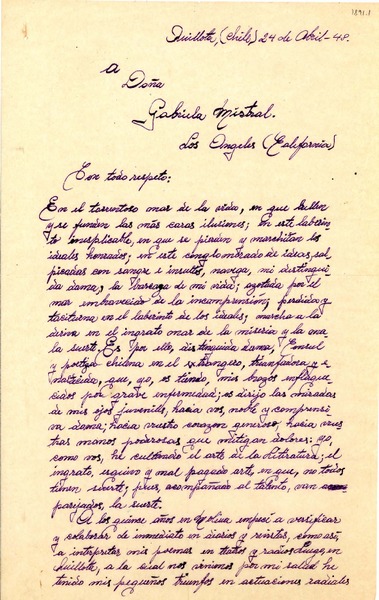 1891.1
Quillota, (Chile,) 24 de Abril-48.
A
Doña
Gabriela Mistral.
Los Angeles (California)
Con todo respeto:
En el torrentoso mar de la vida, en que
y se funden las más caras ilusiones; en este laberin-
to inexplicable, en que se pierden y marchitan los
ideales honrados; en este conglomerado de ideas, sal-
picadas con sangre e insultos, navega, mi distingui-
da dama, la barcaza de mi vida; azotada por el
mar embravecido de la incomprensión; perdida y
taciturna en el laberinto de los ideales; marcha a la
deriva en el ingrato mar de la miseria y la ma-
la suerte. Es por ello, distinguida dama, Cónsul
y poetiza chilena en el extrangero, triunfadora y e-
, que, yo, es tiendo, mis brazos enflaque-
cidos por grave enfermedad; es dirijo las miradas
de mis ojos juveniles, hacia vos, noble y comprensi-
va dama; hacia vuestro corazon generoso; hacia vues-
tras manos poderosas que mitigan dolores: yo,
como vos, he cultivado el arte de la Literatura; el
ingrato, esquivo y mal pagado arte, en que, no todos
tienen suerte; pues, acompañado al talento, van
parejados, la suerte.
A los quince años en Molina empecé a versificar
y colaborar de inmediato en diarios y revistas, como así,
a interpretar mis poemas en teatros y radios; luego, en
Quillota, a la cual nos vinimos por mi salud he
tenido mis pequeños triunfos en actuaciones radiales